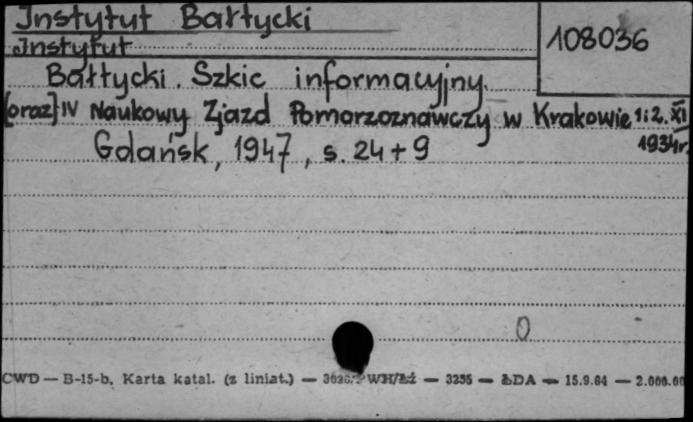 Instytut Bałtycki
108036
Instytut
Bałtycki. Szkic informacyjny.
[oraz] IV Naukowy Zjazd Pomorzoznawczy w Krakowie 1i2.XI
1934r.
Gdańsk, 1947, s. 24+9
0
CWD — B-15-b, Karta katal. (z liniat.) — WH/Łż — 3255 — ŁDA — 15.9.64 — 2.000.00